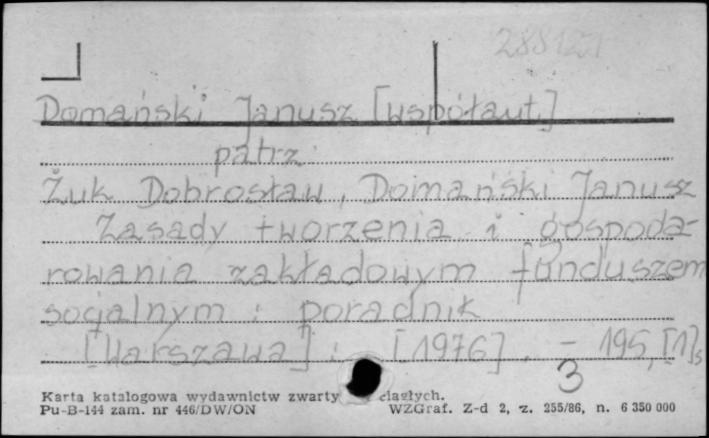 288121
Domański Janusz [współaut.]
patrz
Żuk Dobrosław, Domański Janusz
Zasady tworzenia i gospoda-
rowania zakładowym funduszem
socjalnym : poradnik
[Warszawa] : [1976]. - 195, [1]s
3
Karta katalogowa wydawnictw zwarty ciągłych.
Pu-B-144 zam. nr 446/DW/ON WZGraf. Z-d 2, z. 255/86, n. 6 350 000